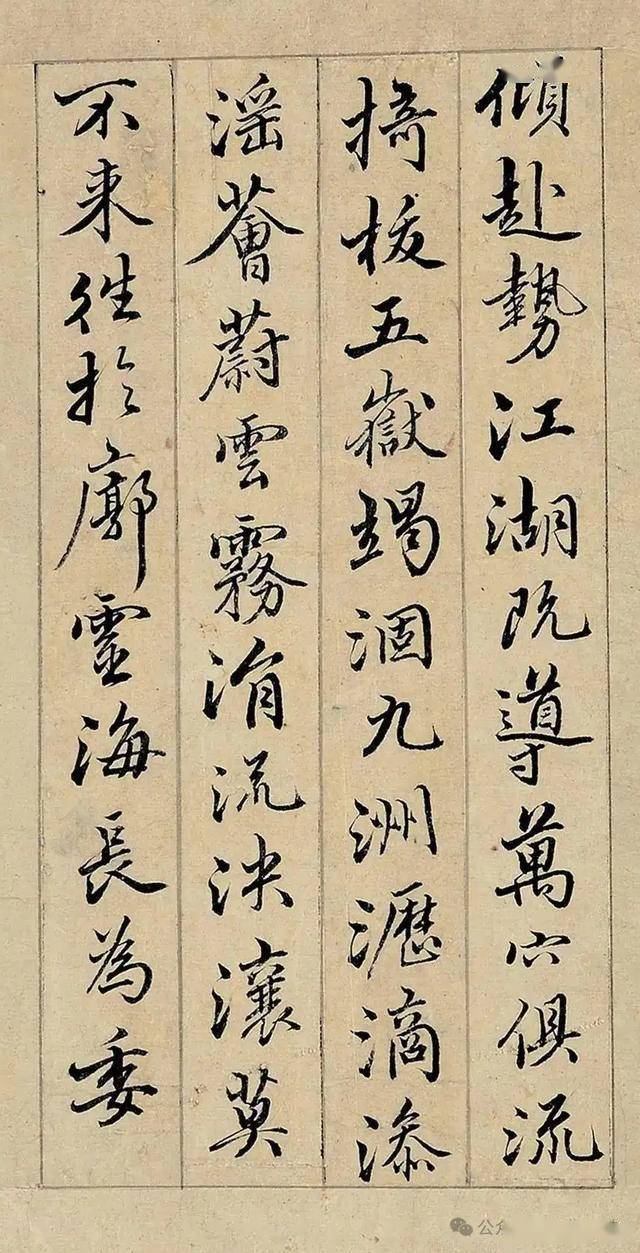 傾赴勢江湖既導萬穴俱流
掎拔五嶽竭涸九洲瀝滴滲
淫薈蔚雲霧涓流泱瀼莫
不來往於廓靈海長為委
公众